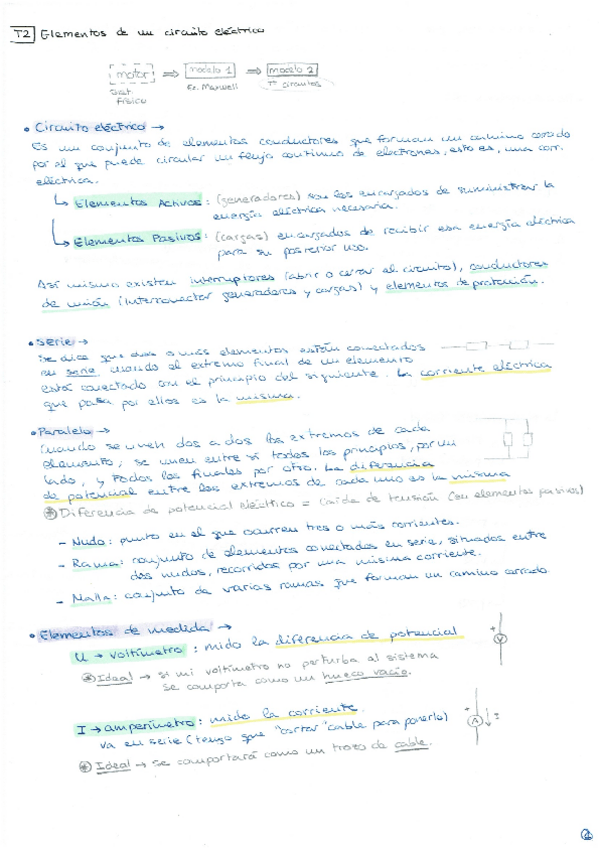 T2 Elementos de un circuito eléctrico
motor ⇒ modelo 1 ⇒ modelo 2
Sist. físico
Ec. Maxwell
Tª circuitos
• Circuito eléctrico →
Es un conjunto de elementos conductores que forman un camino cerrado
por el que puede circular un flujo continuo de electrones, esto es, una corr.
eléctrica.
↳ Elementos Activos: (generadores) son los encargados de suministrar la
energía eléctrica necesaria.
↳ Elementos Pasivos: (cargas) encargados de recibir esa energía eléctrica
para su posterior uso.
Así mismo existen interruptores (abrir o cerrar el circuito), conductores
de unión (interconectar generadores y cargas) y elementos de protección.
• Serie →
Se dice que dos o más elementos están conectados
en serie, cuando el extremo final de un elemento
está conectado con el principio del siguiente. La corriente eléctrica
que pasa por ellos es la misma.
• Paralelo →
Cuando se unen dos a dos los extremos de cada
elemento, se unen entre sí todos los principios, por un
lado, y todos los finales por otro. La diferencia
de potencial entre los extremos de cada uno es la misma
* Diferencia de potencial eléctrico = Caída de tensión (en elementos pasivos)
- Nudo: punto en el que ocurren tres o más corrientes.
- Rama: conjunto de elementos conectados en serie, situados entre
dos nudos, recorridos por una misma corriente.
- Malla: conjunto de varias ramas que forman un camino cerrado
• Elementos de medida →
U → voltímetro: mido la diferencia de potencial
* Ideal → si mi voltímetro no perturba al sistema
se comporta como un hueco vacío.
+
V
I → amperímetro: mido la corriente.
va en serie (tengo que "cortar" cable para ponerlo)
* Ideal → se comportará como un trozo de cable.
+
A
I
1